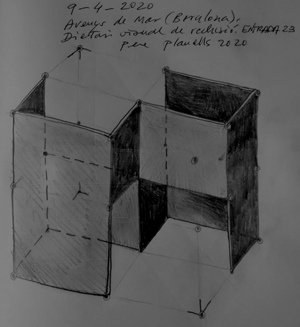 9-4-2020
Arenys de Mar (Barcelona).
Dietari visual de reclusió. ENTRADA 23
pere planells 2020